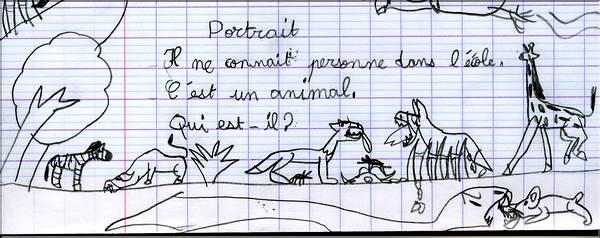 Portrait
Il ne connait personne dans l'école.
C'est un animal.
Qui est-il?